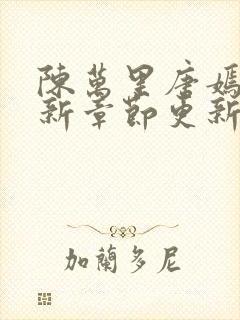 陳萬里唐嫣
新章節更新
加蘭多尼